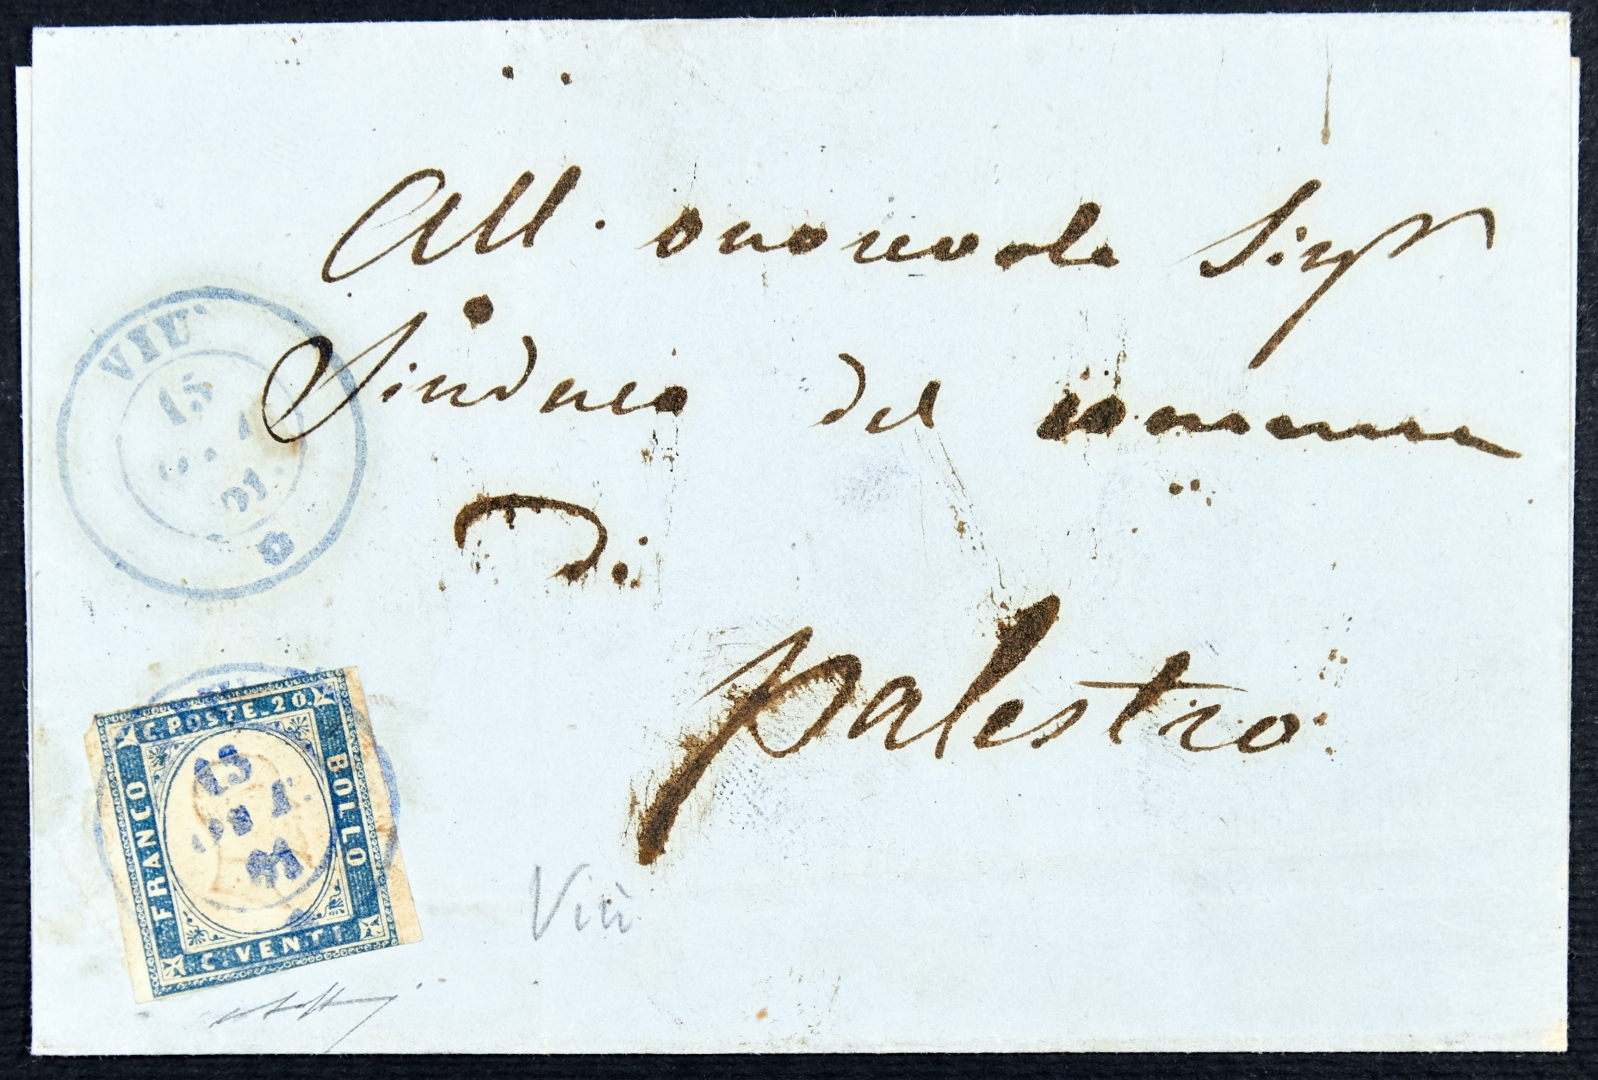 All. onorevole Sigr
Sindaco del comune
Di
Palestro
VIU'
15
91
C. POSTE 20
FRANCO
BOLLO
C. VENTI
15
91
Viù